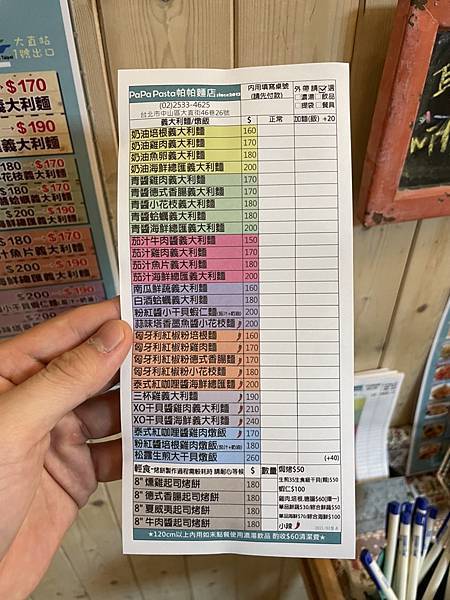 大直站
1號出口
$170
義大利麵
$190
PaPa Pasta帕帕麵店
(02)2533-4625
台北市中山區大直街46巷26號
內用填寫桌號
(請先付款)
外帶請☑選
□濃湯 □飲品
□提袋 □餐具
義大利麵/燉飯 $ 正常 加麵(飯)+20
奶油培根義大利麵 160
奶油雞肉義大利麵 170
奶油魚卵義大利麵 180
奶油海鮮總匯義大利麵 200
青醬雞肉義大利麵 170
青醬德式香腸義大利麵 170
青醬小花枝義大利麵 180
青醬蛤蠣義大利麵 180
青醬海鮮總匯義大利麵 200
茄汁牛肉醬義大利麵 150
茄汁雞肉義大利麵 170
茄汁魚片義大利麵 180
茄汁海鮮總匯義大利麵 200
南瓜鮮蔬義大利麵 160
白酒蛤蠣義大利麵 180
粉紅醬小干貝蝦仁麵(茄汁+奶油) 200
蒜味塔香墨魚醬小花枝麵 200
匈牙利紅椒粉培根麵 160
匈牙利紅椒粉雞肉麵 170
匈牙利紅椒粉德式香腸麵 170
匈牙利紅椒粉小花枝麵 180
泰式紅咖哩醬海鮮總匯麵 200
三杯雞義大利麵 190
XO干貝醬雞肉義大利麵 210
XO干貝醬海鮮義大利麵 240
泰式紅咖哩醬雞肉燉飯 170
粉紅醬培根雞肉燉飯(茄汁+奶油) 180
松露生煎大干貝燉飯 260 (+40)
輕食-*烤餅製作過程需較耗時 請耐心等候 $ 數量
8" 燻雞起司烤餅 180
8" 德式香腸起司烤餅 180
8" 夏威夷起司烤餅 180
8" 牛肉醬起司烤餅 180
焗烤$50
生煎3S生食級干貝(顆)$50
蝦仁$100
雞肉.培根.德腸$60(擇一)
單品鮮蔬$30/綜合鮮蔬$50
單品海鮮$70/綜合海鮮$100
小辣
★120cm以上內用如未點餐使用濃湯飲品 酌收$60清潔費★